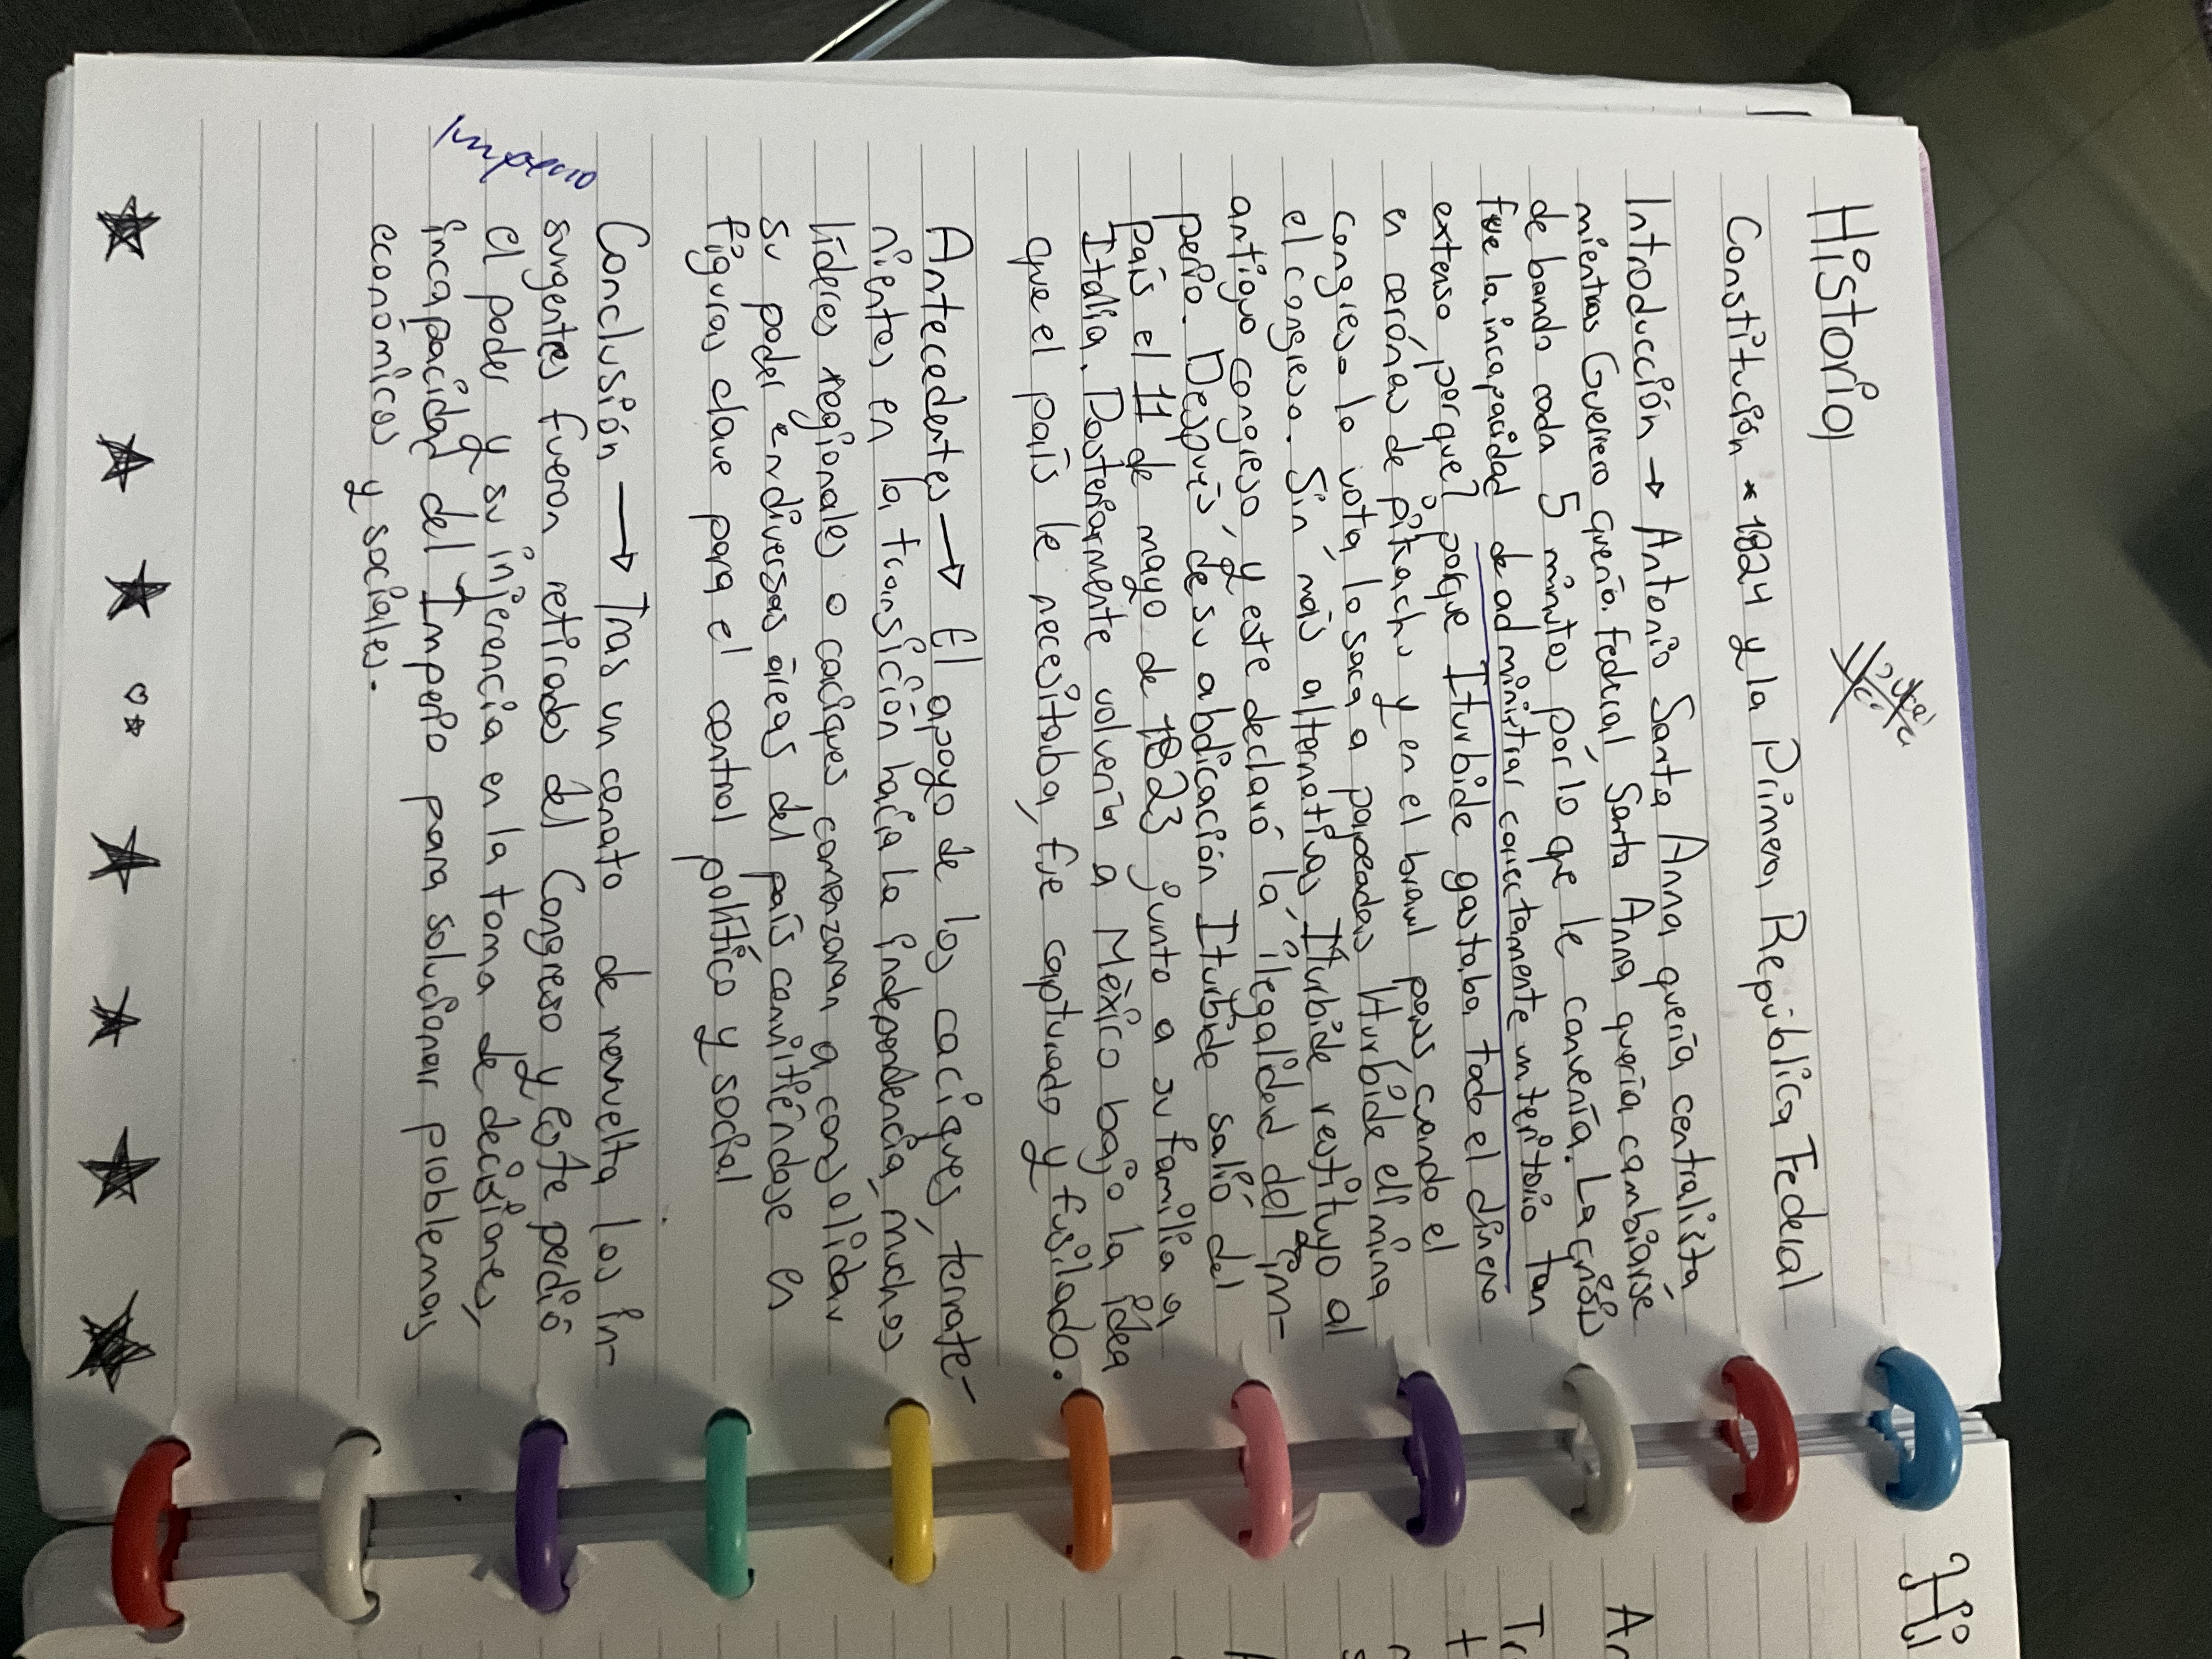 Historia
Constitución * 1824 y la Primera República Federal
Introducción → Antonio Santa Anna quería centralista
mientras Guerrero quería federal. Santa Anna quería cambiarse
de bando cada 5 minutos por lo que le convenía. La crisis
fue la incapacidad de administrar correctamente un territorio tan
extenso porque? porque Iturbide gastaba todo el dinero
en corónas de y en el pues cuando el
congreso lo vota lo saca a Iturbide elimina
el congreso. Sin más alternativas, Iturbide restituyo al
antiguo congreso, y este declaró la ilegalidad del im-
perio. Después de su abdicación Iturbide salió del
país el 11 de mayo de 1823 junto a su familia a
Italia. Posteriormente volvería a México bajo la idea
que el país le necesitaba, fue capturado y fusilado.
Antecedentes → El apoyo de los caciques, terrate-
nientes en la transición hacia la independencia, muchos
líderes regionales o caciques comenzaron a consolidar
su poder en diversas áreas del país convitiéndose en
figuras clave para el control político y social
Conclusión → Tras un conato de revuelta los in-
surgentes fueron retirados del Congreso y este perdió
el poder y su injerencia en la toma de decisiones,
incapacidad del Imperio para solucionar problemas
económicos y sociales.
Imperio
Hi
An
Tr
t